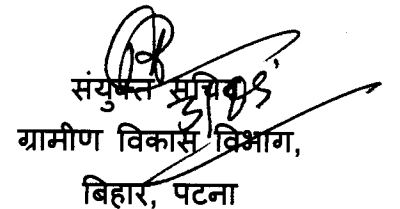 संयुक्त सचिव
ग्रामीण विकास विभाग,
बिहार, पटना